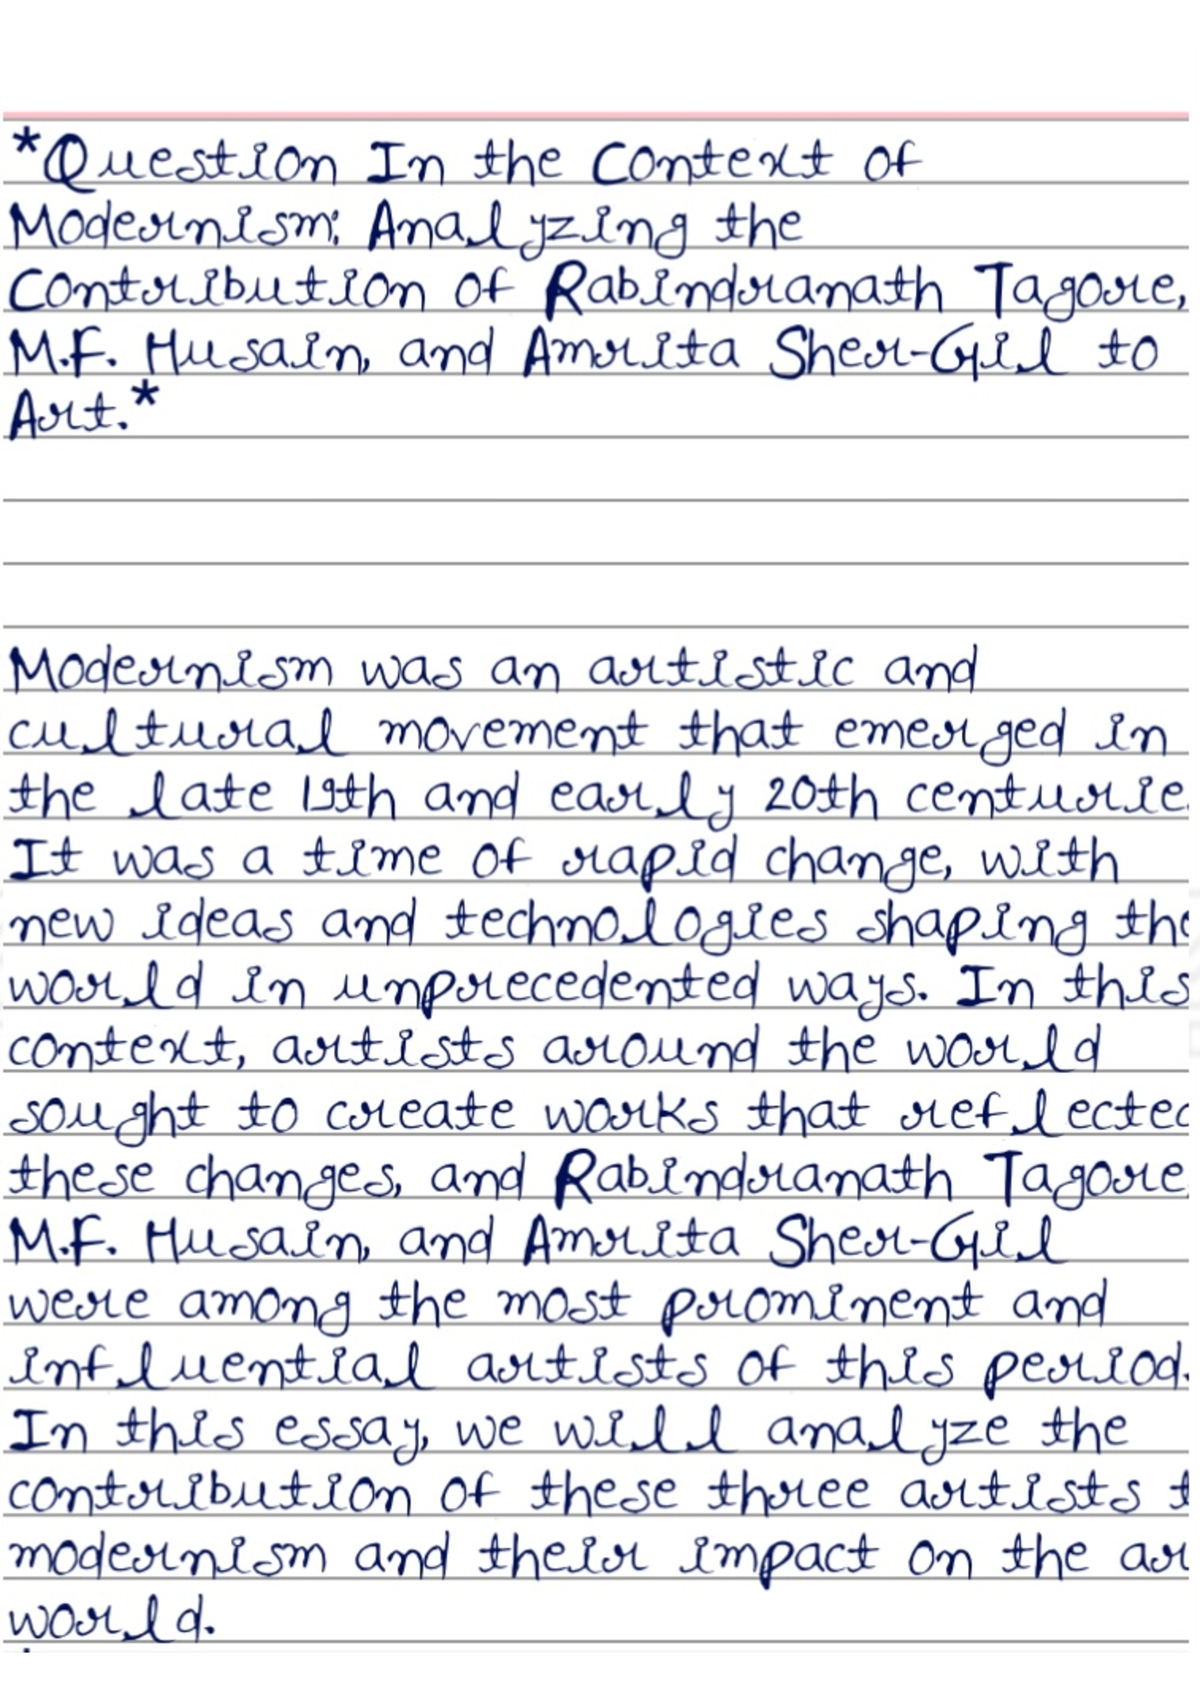 *Question In the Context of
Modernism: Analyzing the
Contribution of Rabindranath Tagore,
M.F. Husain, and Amrita Sher-Gil to
Art.*
Modernism was an artistic and
cultural movement that emerged in
the late 19th and early 20th centurie
It was a time of rapid change, with
new ideas and technologies shaping the
world in unprecedented ways. In this
context, artists around the world
sought to create works that reflected
these changes, and Rabindranath Tagore
M.F. Husain, and Amrita Sher-Gil
were among the most prominent and
influential artists of this period.
In this essay, we will analyze the
contribution of these three artists t
modernism and their impact on the ar
world.